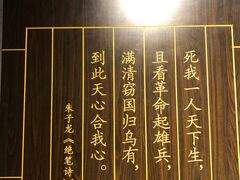 死我一人天下生，
且看革命起雄兵，
满清窃国归乌有，
到此天心合我心。
朱子龙《绝笔诗